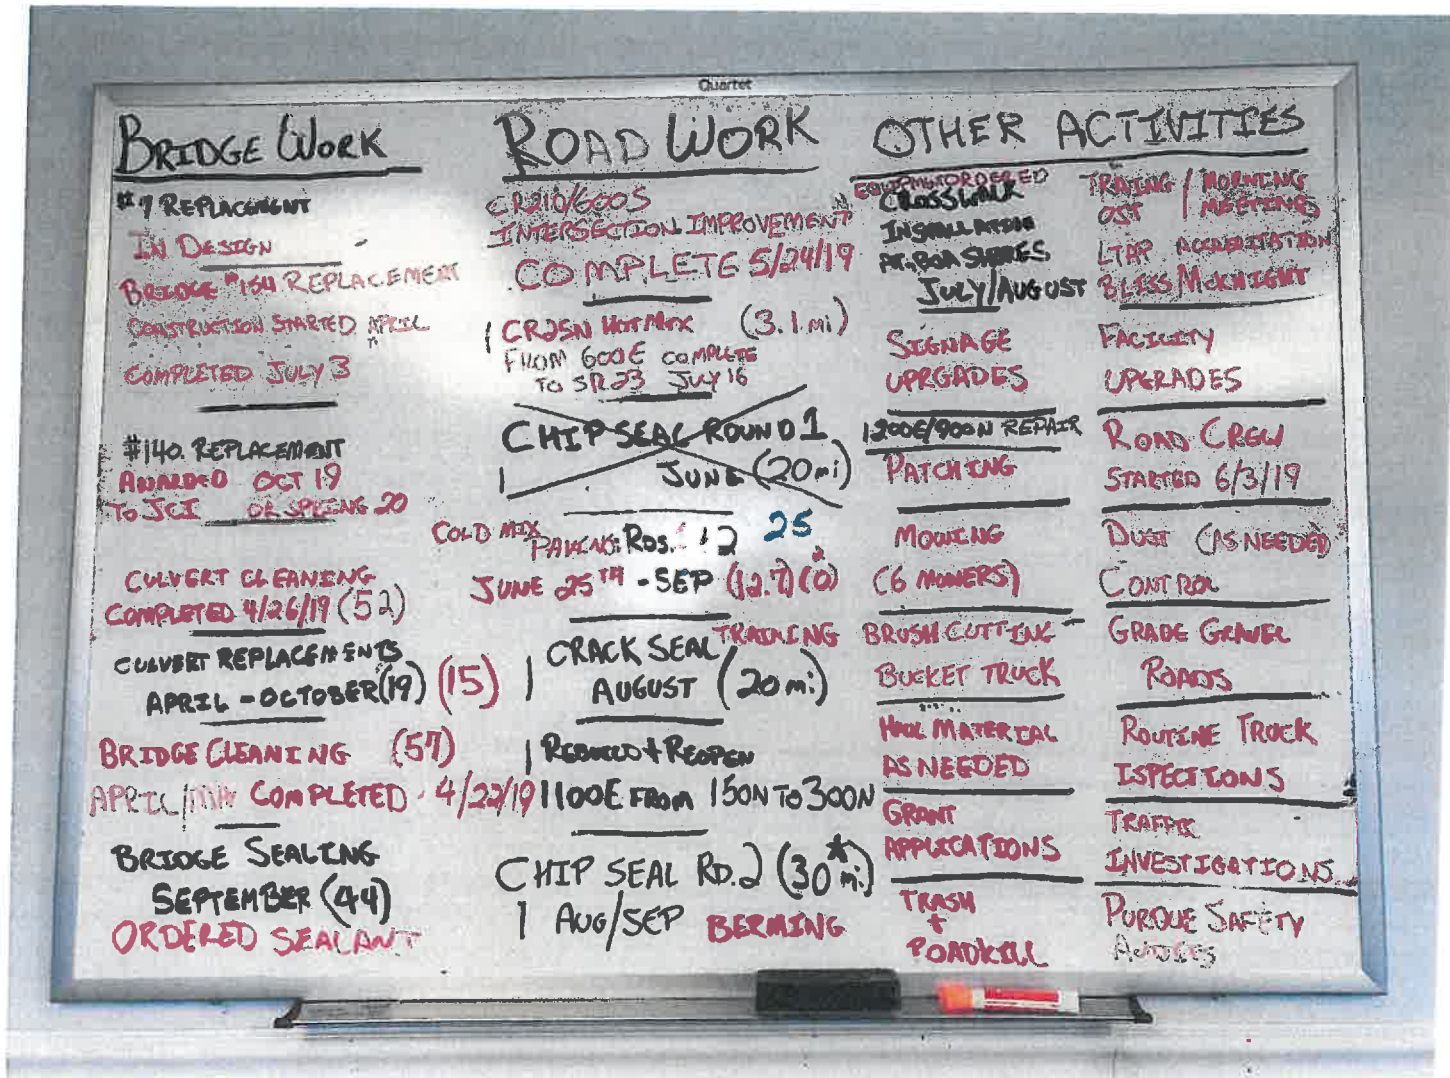 Quartet
BRIDGE WORK
#7 REPLACEMENT
IN DESIGN
BRIDGE #154 REPLACEMENT
CONSTRUCTION STARTED APRIL
COMPLETED JULY 3
#140. REPLACEMENT
AWARDED OCT 19
TO JCI OR SPRING 20
CULVERT CLEANING
COMPLETED 4/26/19 (52)
CULVERT REPLACEMENTS
APRIL - OCTOBER (19) (15)
BRIDGE CLEANING (57)
APRIL/MA COMPLETED 4/22/19
BRIDGE SEALING
SEPTEMBER (44)
ORDERED SEALANT
ROAD WORK
CR210/600S
INTERSECTION IMPROVEMENT
COMPLETE 5/24/19
1 CR25N HOT MIX (3.1 mi)
FROM 600E COMPLETE
TO SR23 JULY 16
CHIP SEAL ROUND 1
1 JUNE (20 mi)
COLD MIX PAVING: RDS. 12 25
JUNE 25TH - SEP (12.7) (0)
CRACK SEAL TRAINING
1 AUGUST (20 mi)
1 REBUILD + REOPEN
1100E FROM 150N TO 300N
CHIP SEAL RD. 2 (30* mi.)
1 AUG/SEP BERMING
OTHER ACTIVITIES
EQUIPMENT ORDERED
CROSSWALK
INSTALLATION
SHORES
JULY/AUGUST
SIGNAGE
UPRGADES
1200E/900N REPAIR
PATCHING
MOWING
(6 MOWERS)
BRUSH CUTTING
BUCKET TRUCK
HAUL MATERIAL
AS NEEDED
GRANT
APPLICATIONS
TRASH
+
ROADKILL
TRAING / MORNING
OST / MEETINGS
LTAP ACCREDITATION
BLISS/MCKNIGHT
FACILITY
UPGRADES
ROAD CREW
STARTED 6/3/19
DUST (AS NEEDED)
CONTROL
GRADE GRAVEL
ROADS
ROUTINE TRUCK
ISPECTIONS
TRAFFIC
INVESTIGATIONS
PURDUE SAFETY